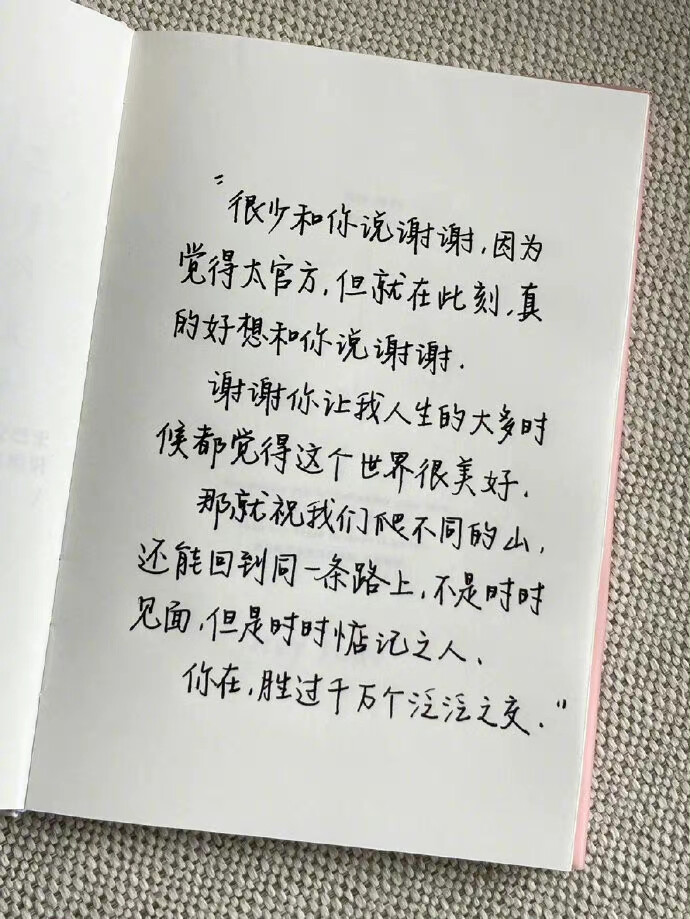 "很少和你说谢谢,因为
觉得太官方,但就在此刻,真
的好想和你说谢谢.
谢谢你让我人生的大多时
候都觉得这个世界很美好.
那就祝我们爬不同的山,
还能回到同一条路上,不是时时
见面,但是时时惦记之人、
你在,胜过千万个泛泛之交."